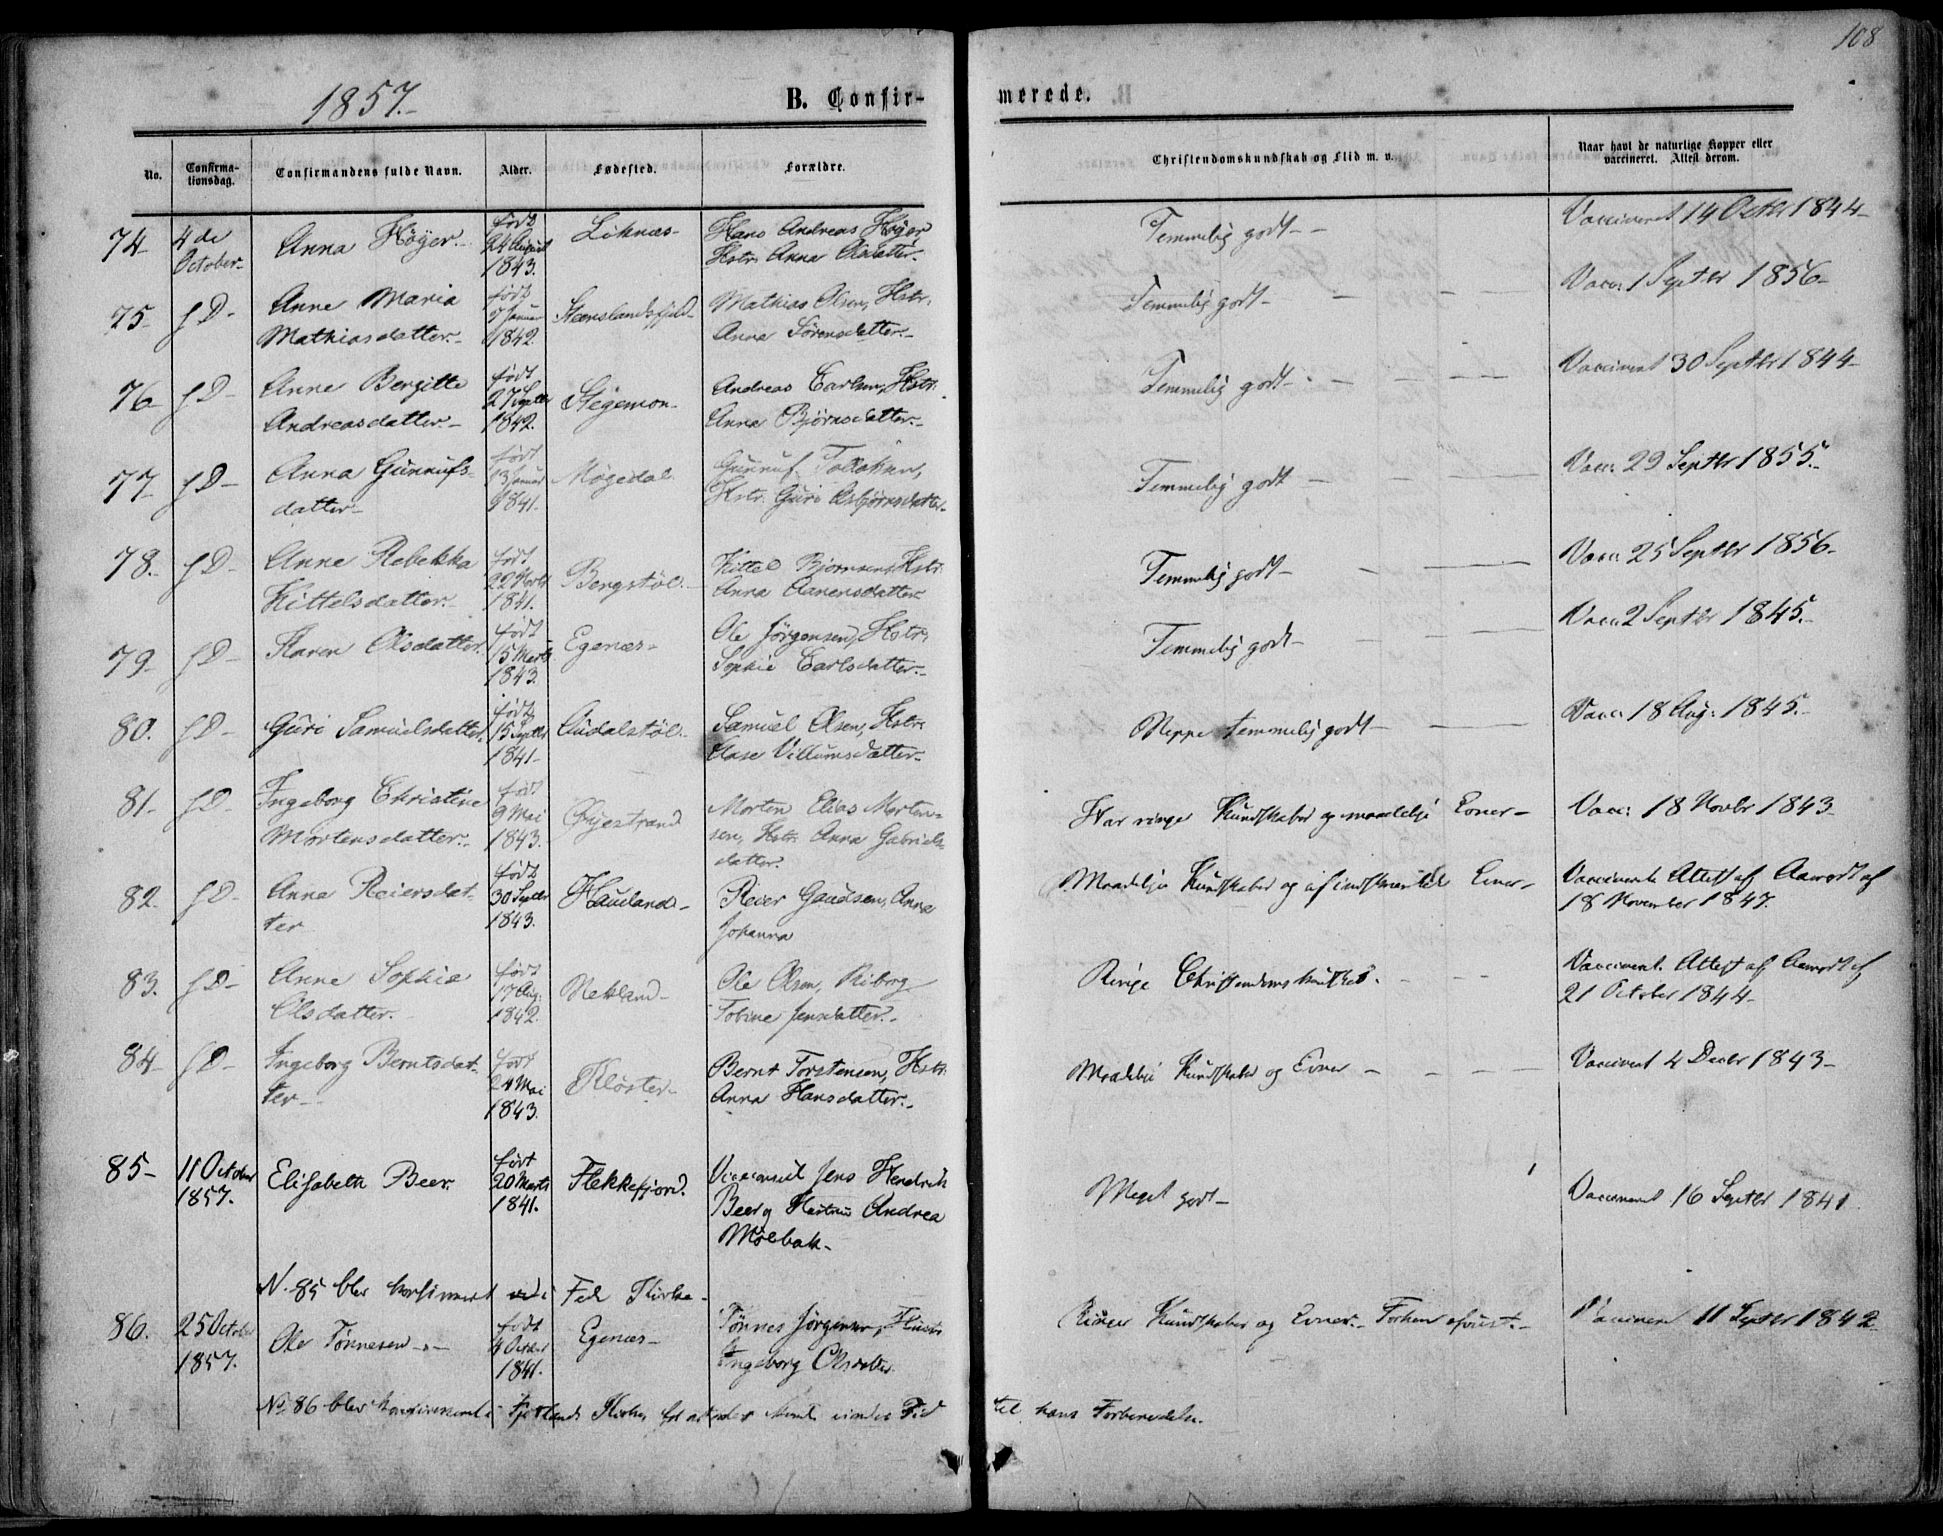 108
1857.-
B. Confir-
merede.
No.
Confirma-
tionsdag.
Confirmandens fulde Navn.
Alder.
Fødested.
Forældre.
Christendomskundskab og Flid m. v.
Naar havt de naturlige Kopper eller
vaccineret. Attest derom.
74- 4de October- Anna Høyer.- født 24 August 1843. Liknæs- Hans Andreas Høyer Hstr. Anna Olsdatter.- Temmelig godt - - Vaccineret 14 Octbr 1844-
75- sD- Anne Maria Mathiasdatter.- født Januar 1842. Steenslandsfjeld- Mathias Olsen, Hstr. Anna Sørensdatter.- Temmelig godt- Vacc: 1 Septbr 1856-
76- sD- Anne Bergitte Andreasdatter.- født 27 Septbr 1842. Stegemon- Andreas Carlsen, Hstr. Anna Bjørnsdatter.- Temmelig godt- Vaccineret 30 Septbr 1844-
77- sD- Anna Gunnufs- datter- født 13 Januar 1841. Møgedal. Gunnuf Hstr. Guri Asbjørnsdatter- Temmelig godt - Vacc: 29 Septbr 1855.-
78.- sD- Anne Rebekka Kittelsdatter.- født 20 1841. Bergstøl- Kittel Bjørnsen, Hstr. Anna Aanensdatter- Temmelig godt- Vacc: 25 Septbr 1856-
79- sD- Karen Olsdatter. født 15 Marts 1843. Egenæs- Ole Jørgensen, Hstr. Sophie Carlsdatter.- Temmelig godt- Vacc: 2 Septbr 1845.-
80. sD- Guri Samuelsdatter. født 15 Septbr 1841- Audalstøl- Samuel Olsen, Hstr. Aase Villumsdatter- Neppe temmelig godt- Vacc: 18 Aug: 1845.-
81.- sD- Ingeborg Christine Mortensdatter.- født 9 Mai 1843. Øyestrand Morten Elias Morten- sen, Hstr. Anna Gabriels- datter. Har ringe Kundskaber og maadelige Evner- Vacc: 18 Novbr 1843
82. sD- Anna Reiersdat- ter født 30 Septbr 1843. Hauland- Reier Gaudsen, Anna Johanna Maadelige Kundskaber og Evner- Vaccineret. Attest af Aamodt af 18 November 1847.
83. sD- Anne Sophie Olsdatter.- født 17 Aug: 1842. Netland- Ole Olsen, Tobine Jensdatter.- Ringe Christendomskundskab. Vaccineret. Attest af Aamodt af 21 October 1844-
84- sD- Ingeborg Berntsdat- ter- født 24 Mai 1843. Kløster- Bernt Torstensen, Hstr. Anna Hansdatter.- Maadelige Kundskaber og Evner - Vaccineret 4 Decbr 1843-
85- 11 October 1857. Elisabeth Beer. født 20 Marts 1841. Flekkefjord. Viceconsul Jens Hendrik Beer og Hustrue Andrea Mølbak- Meget godt- Vaccineret 16 Septbr 1841
N. 85 blev konfirmeret i Feda Kirke-
86. 25 October 1857. Ole Tønnesen - født 4 Octbr 1841. Egenæs- Tønnes Jørgensen, Hustr. Ingeborg Olsdatter Ringe Kundskaber og Evner.- Vaccineret 11 Septbr 1842-
No. 86 blev konfirmeret i Fjotlands Kirke, Tid til hans Forberedelse.